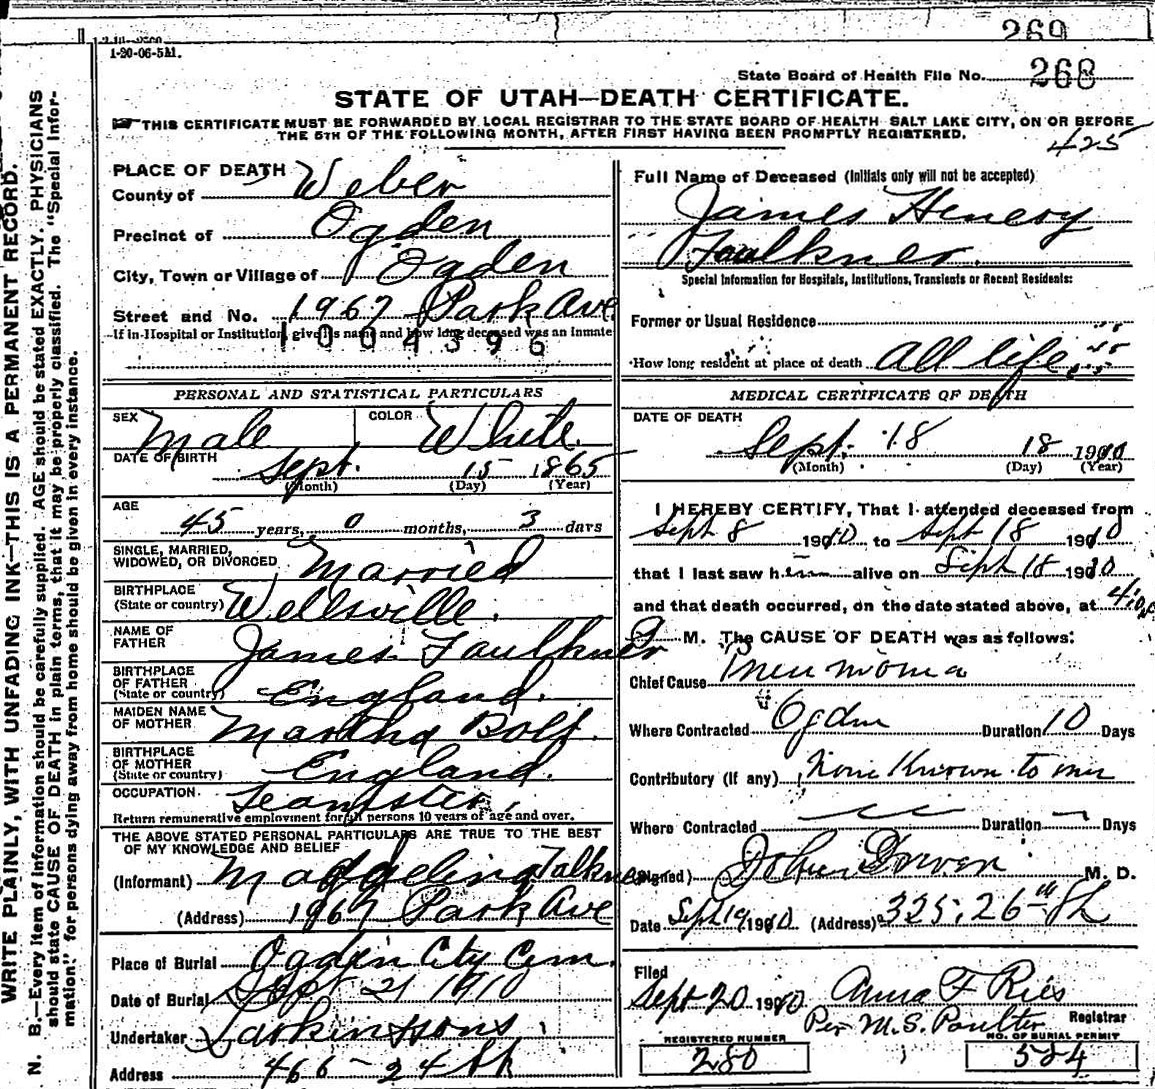 269
1-20-06-5M.
State Board of Health File No. 268
STATE OF UTAH—DEATH CERTIFICATE.
THIS CERTIFICATE MUST BE FORWARDED BY LOCAL REGISTRAR TO THE STATE BOARD OF HEALTH SALT LAKE CITY, ON OR BEFORE
THE 5TH OF THE FOLLOWING MONTH, AFTER FIRST HAVING BEEN PROMPTLY REGISTERED.
425
WRITE PLAINLY, WITH UNFADING INK—THIS IS A PERMANENT RECORD.
N. B.—Every item of information should be carefully supplied. AGE should be stated EXACTLY. PHYSICIANS
should state CAUSE OF DEATH in plain terms, that it may be properly classified. The "Special Infor-
mation" for persons dying away from home should be given in every instance.
PLACE OF DEATH
County of Weber
Precinct of Ogden
City, Town or Village of Ogden
Street and No. 1967 Park Ave
If in Hospital or Institution, give its name and how long deceased was an inmate
1004396
PERSONAL AND STATISTICAL PARTICULARS
SEX Male COLOR White.
DATE OF BIRTH Sept. 15 1865
(Month) (Day) (Year)
AGE
45 years, 0 months, 3 days
SINGLE, MARRIED,
WIDOWED, OR DIVORCED Married
BIRTHPLACE
(State or country) Wellsville.
NAME OF
FATHER James Faulkner
BIRTHPLACE
OF FATHER
(State or country) England.
MAIDEN NAME
OF MOTHER Martha Bolt.
BIRTHPLACE
OF MOTHER
(State or country) England.
OCCUPATION Teamster,
Return remunerative employment for all persons 10 years of age and over.
THE ABOVE STATED PERSONAL PARTICULARS ARE TRUE TO THE BEST
OF MY KNOWLEDGE AND BELIEF
(Informant) Falkner
(Address) 1967 Park Ave
Place of Burial Ogden City Cem.
Date of Burial Sept 21 1910
Undertaker Larkin & Sons
Address 466 - 24th
Full Name of Deceased (Initials only will not be accepted)
James Henery
Faulkner.
Special Information for Hospitals, Institutions, Transients or Recent Residents:
Former or Usual Residence
How long resident at place of death All life
MEDICAL CERTIFICATE OF DEATH
DATE OF DEATH
Sept. 18 18 1910
(Month) (Day) (Year)
I HEREBY CERTIFY, That I attended deceased from
Sept 8 1910 to Sept 18 1910
that I last saw him alive on Sept 18 1910
and that death occurred, on the date stated above, at
M. The CAUSE OF DEATH was as follows:
Chief Cause Pneumonia
Where Contracted Ogden Duration 10 Days
Contributory (if any) None Known to me
Where Contracted Duration Days
(Signed) John Driver M. D.
Date Sept 19, 1910 (Address) 325. 26th St
Filed
Sept 20 1910 Anna F Ries
Per M.S. Poulter Registrar
REGISTERED NUMBER
280
NO. OF BURIAL PERMIT
524